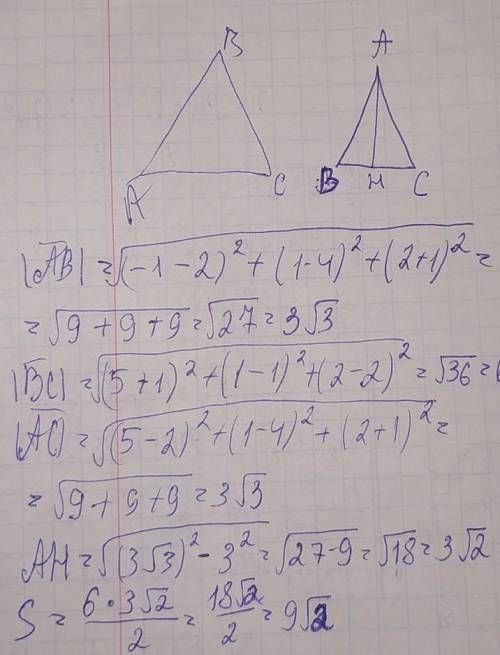 B
A
A C B H C
|AB| = √((-1-2)² + (1-4)² + (2+1)²) =
= √(9+9+9) = √27 = 3√3
|BC| = √((5+1)² + (1-1)² + (2-2)²) = √36 = 6
|AC| = √((5-2)² + (1-4)² + (2+1)²) =
= √(9+9+9) = 3√3
AH = √((3√3)² - 3²) = √(27-9) = √18 = 3√2
S = (6·3√2)/2 = 18√2/2 = 9√2